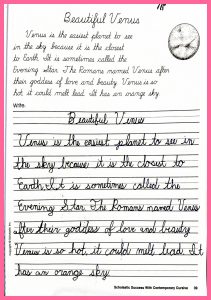 Beautiful Venus
Venus is the easiest planet to see
in the sky because it is the closest
to Earth. It is sometimes called the
Evening Star. The Romans named Venus after
their goddess of love and beauty. Venus is so
hot it could melt lead. It has an orange sky.
Write.
Beautiful Venus
Venus is the easiest planet to see in
the sky because it is the closest to
Earth. It is sometimes called the
Evening Star. The Romans named Venus
after their goddess of love and beauty.
Venus is so hot, it could melt lead. It
has an orange sky.
Scholastic Success With Contemporary Cursive 39